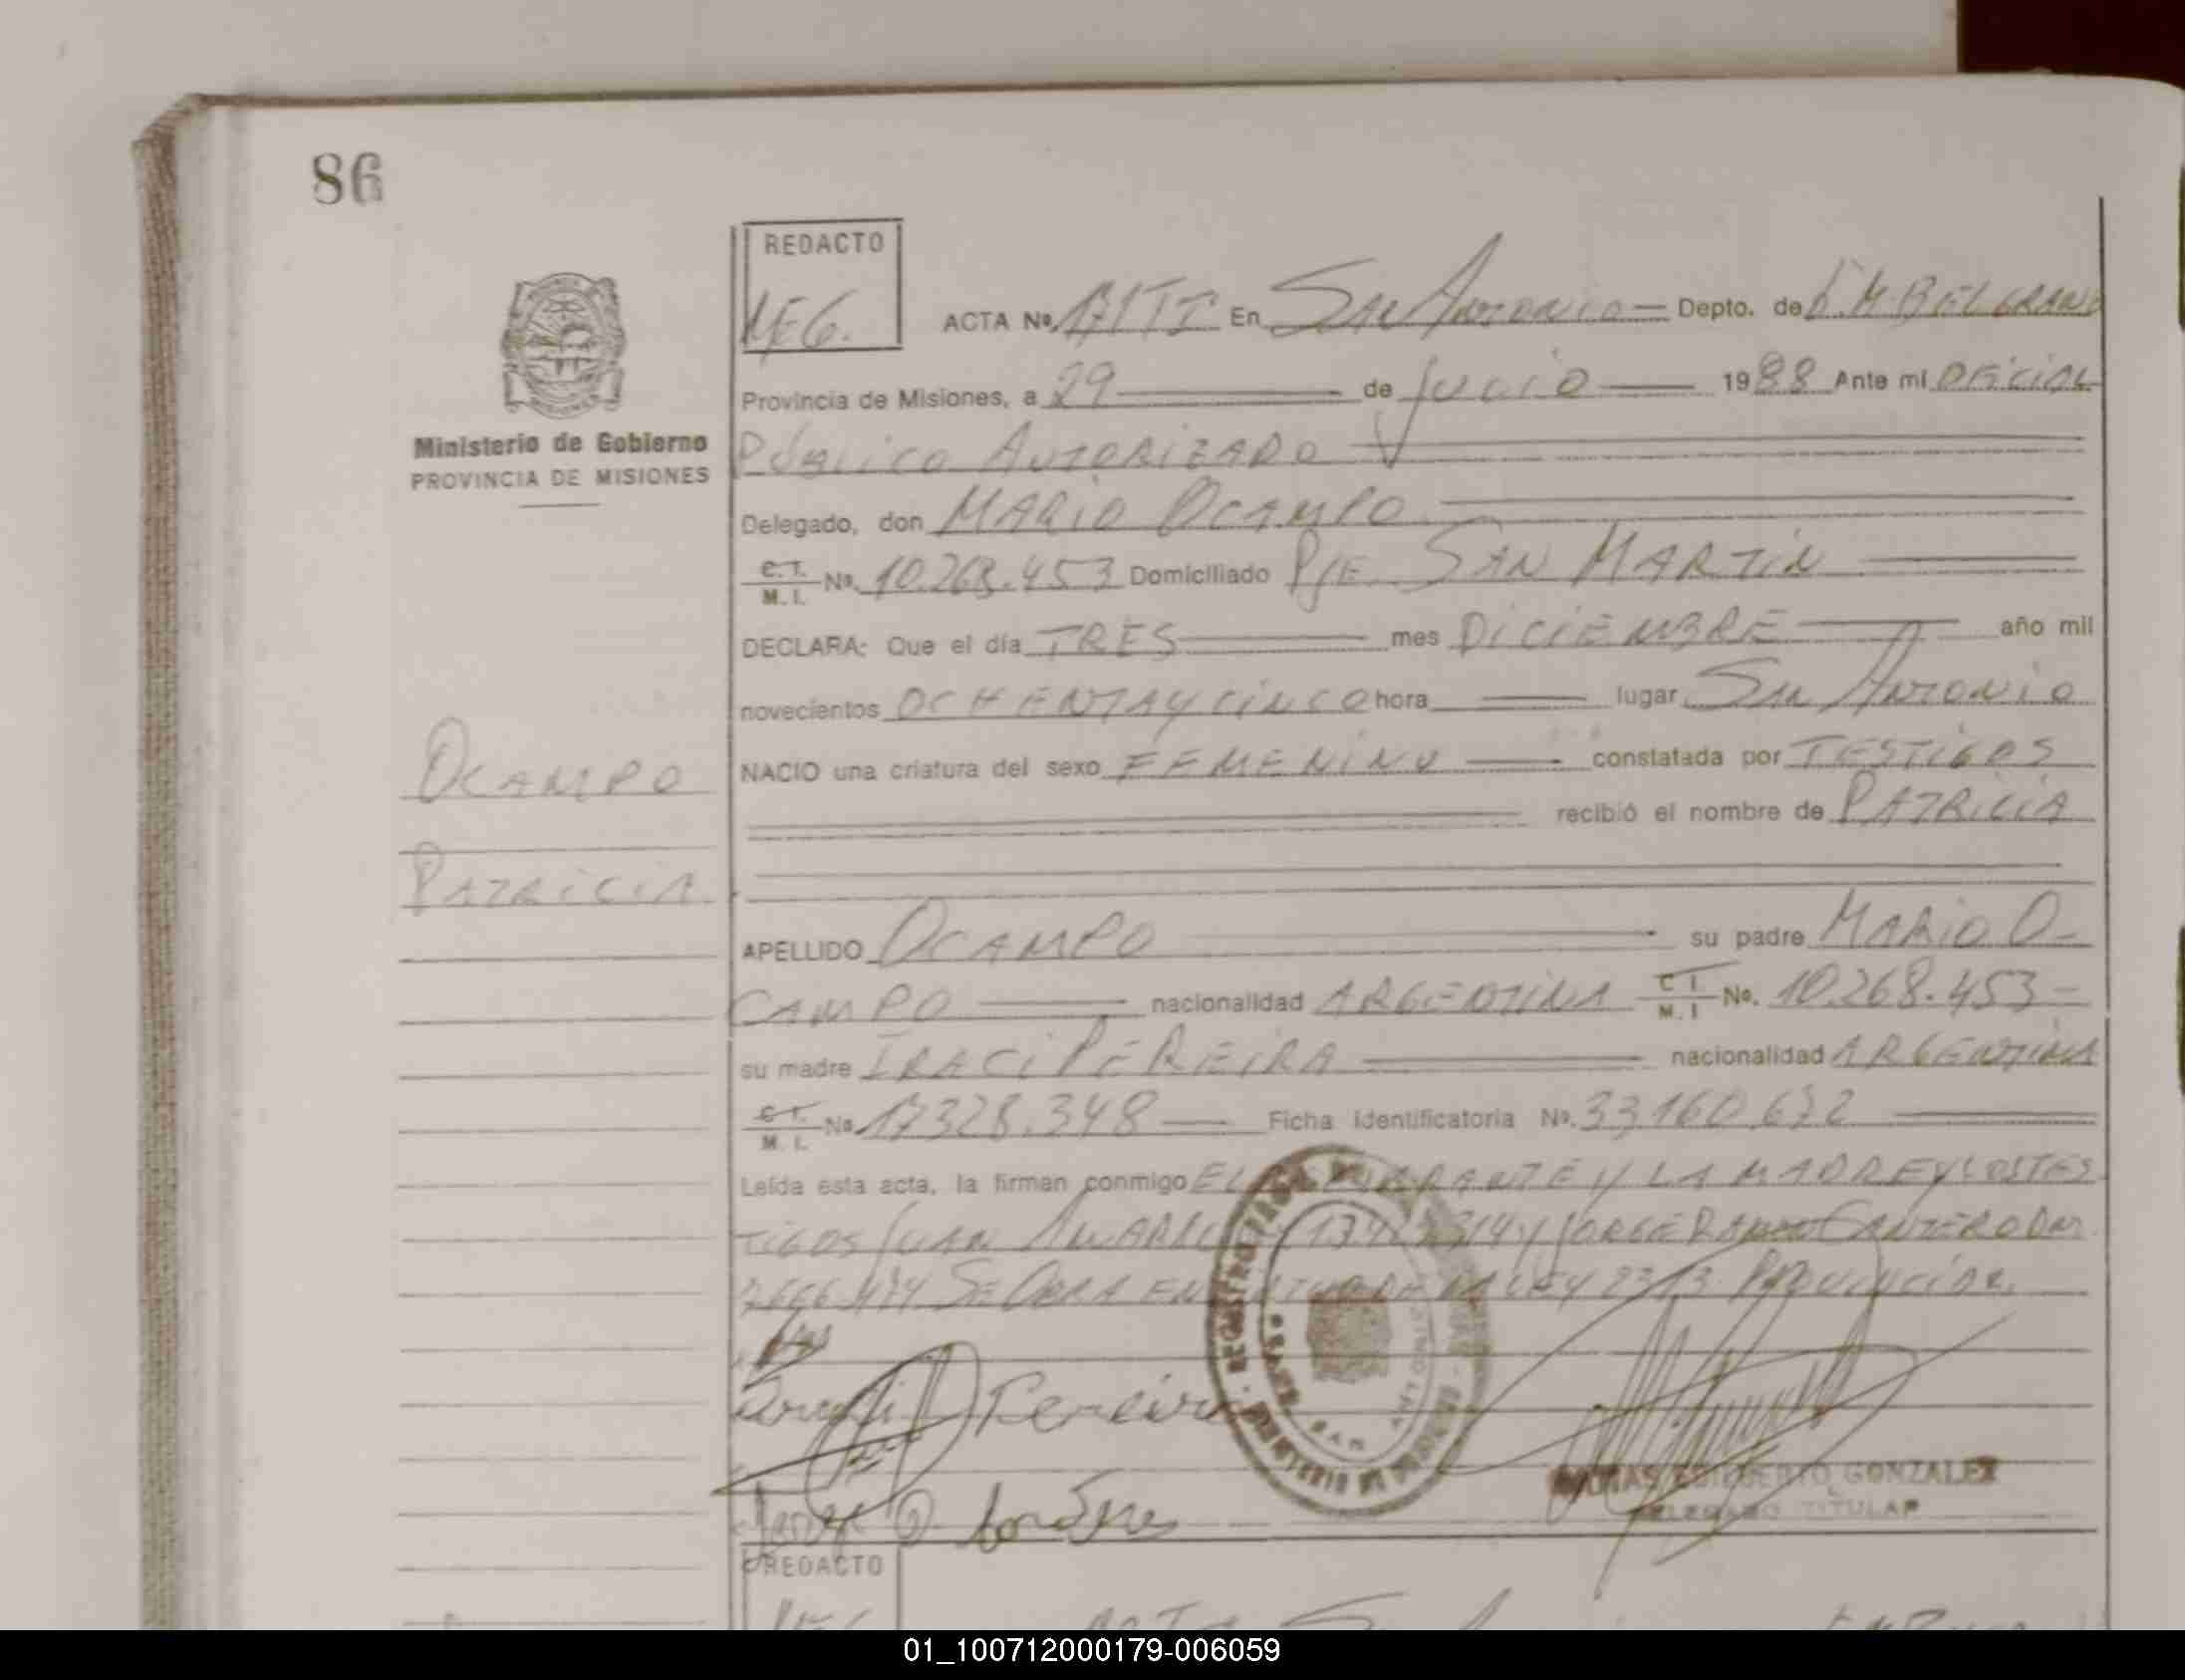 86
REDACTO
ACTA Nº 171 TI En San Antonio Depto. de G.M BELGRANO
Provincia de Misiones, a 29 de Julio 1988 Ante mí OFICIAL
Ministerio de Gobierno
PROVINCIA DE MISIONES
Público AUTORIZADO
Delegado, don MARIO OCAMPO
C.I. M.I. Nº 10.268.453 Domiciliado PJE. SAN MARTIN
DECLARA: Que el día TRES mes DICIEMBRE año mil
novecientos OCHENTA Y CINCO hora lugar San Antonio
OCAMPO
NACIO una criatura del sexo FEMENINO constatada por TESTIGOS
recibió el nombre de PATRICIA
PATRICIA
APELLIDO OCAMPO su padre MARIO O-
CAMPO nacionalidad ARGENTINA C I M. I No. 10.268.453-
su madre IRACI PEREIRA nacionalidad ARGENTINA
C.I. M.I. Nº 17328.348 Ficha Identificatoria Nº. 33160.632
Leída esta acta, la firman conmigo EL Y LA MADRE Y LOS TES
TIGOS JUAN JORGE CANTERO DNI
SE LABRA EN LEY PROVINCIAL
Pereira
GONZALEZ
DELEGADO TITULAR
REDACTO
01_100712000179-006059